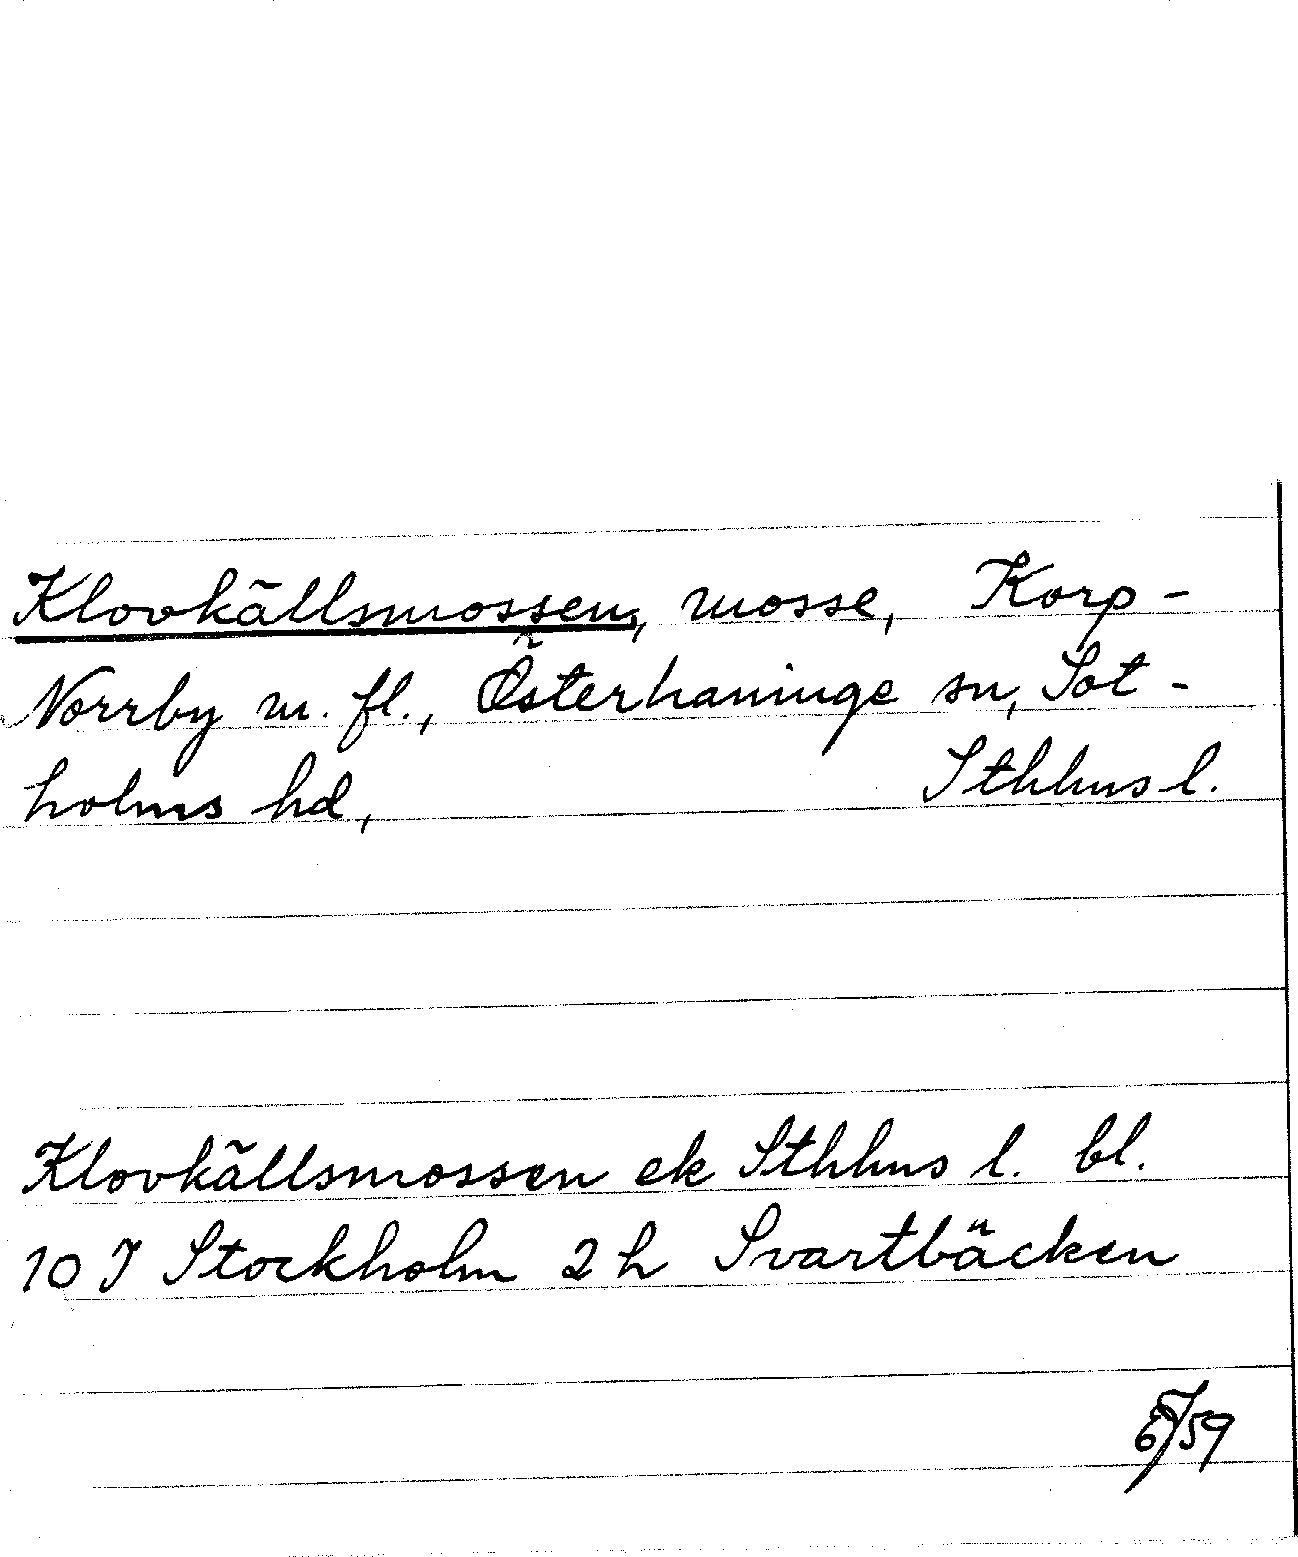 Klovkällsmossen, mosse, Korp-
Norrby m. fl., Österhaninge sn, Sot-
holms hd, Sthlms l.
Klovkällsmossen ek Sthlms l. bl.
10 J Stockholm 2 h Svartbäcken
/59